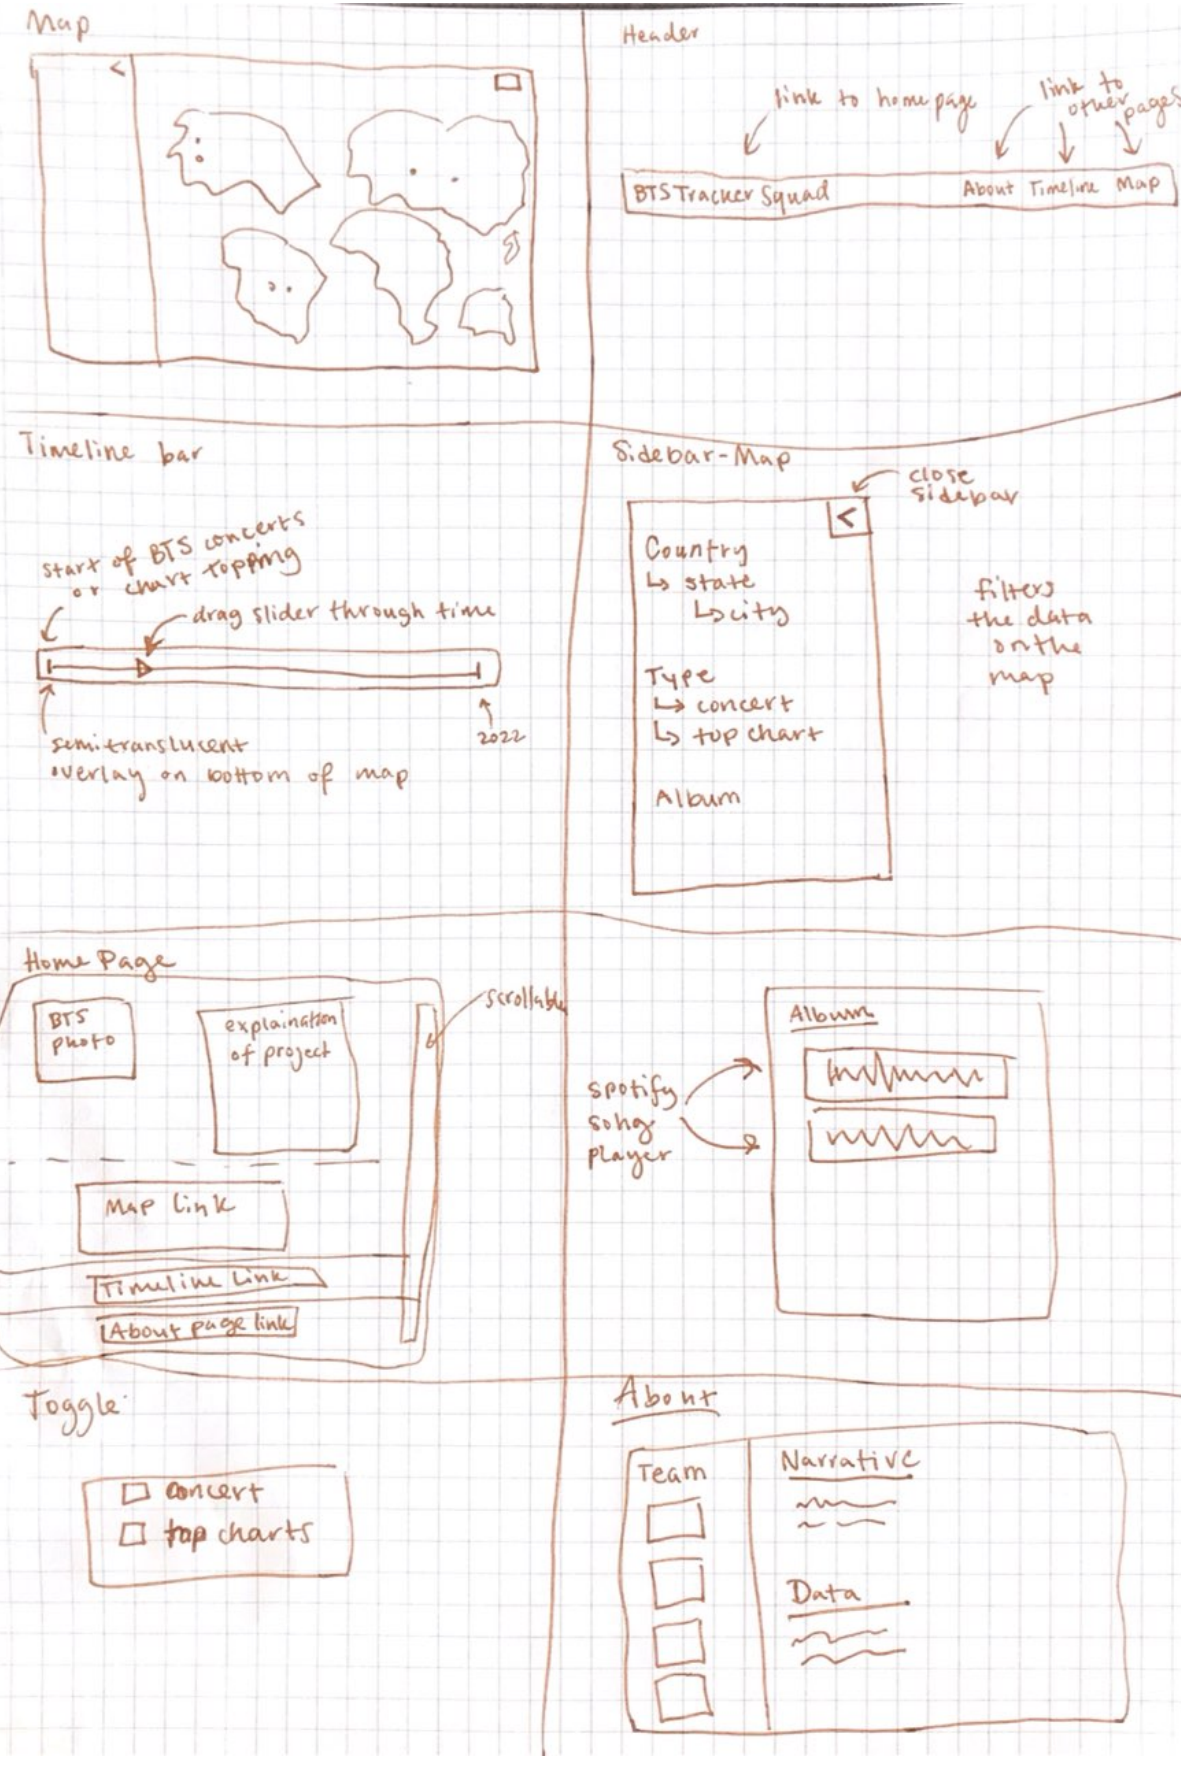 Map
<
Header
link to homepage
link to
other
pages
BTS Tracker Squad
About Timeline Map
Timeline bar
start of BTS concerts
or chart topping
drag slider through time
semitranslucent
overlay on bottom of map
2022
Sidebar-Map
close
sidebar
<
Country
↳ state
↳ city
Type
↳ concert
↳ top chart
Album
filters
the data
on the
map
Home Page
BTS
photo
explaination
of project
scrollable
Map Link
Timeline Link
About page link
Album
spotify
song
player
Toggle
concert
top charts
About
Team
Narrative
Data